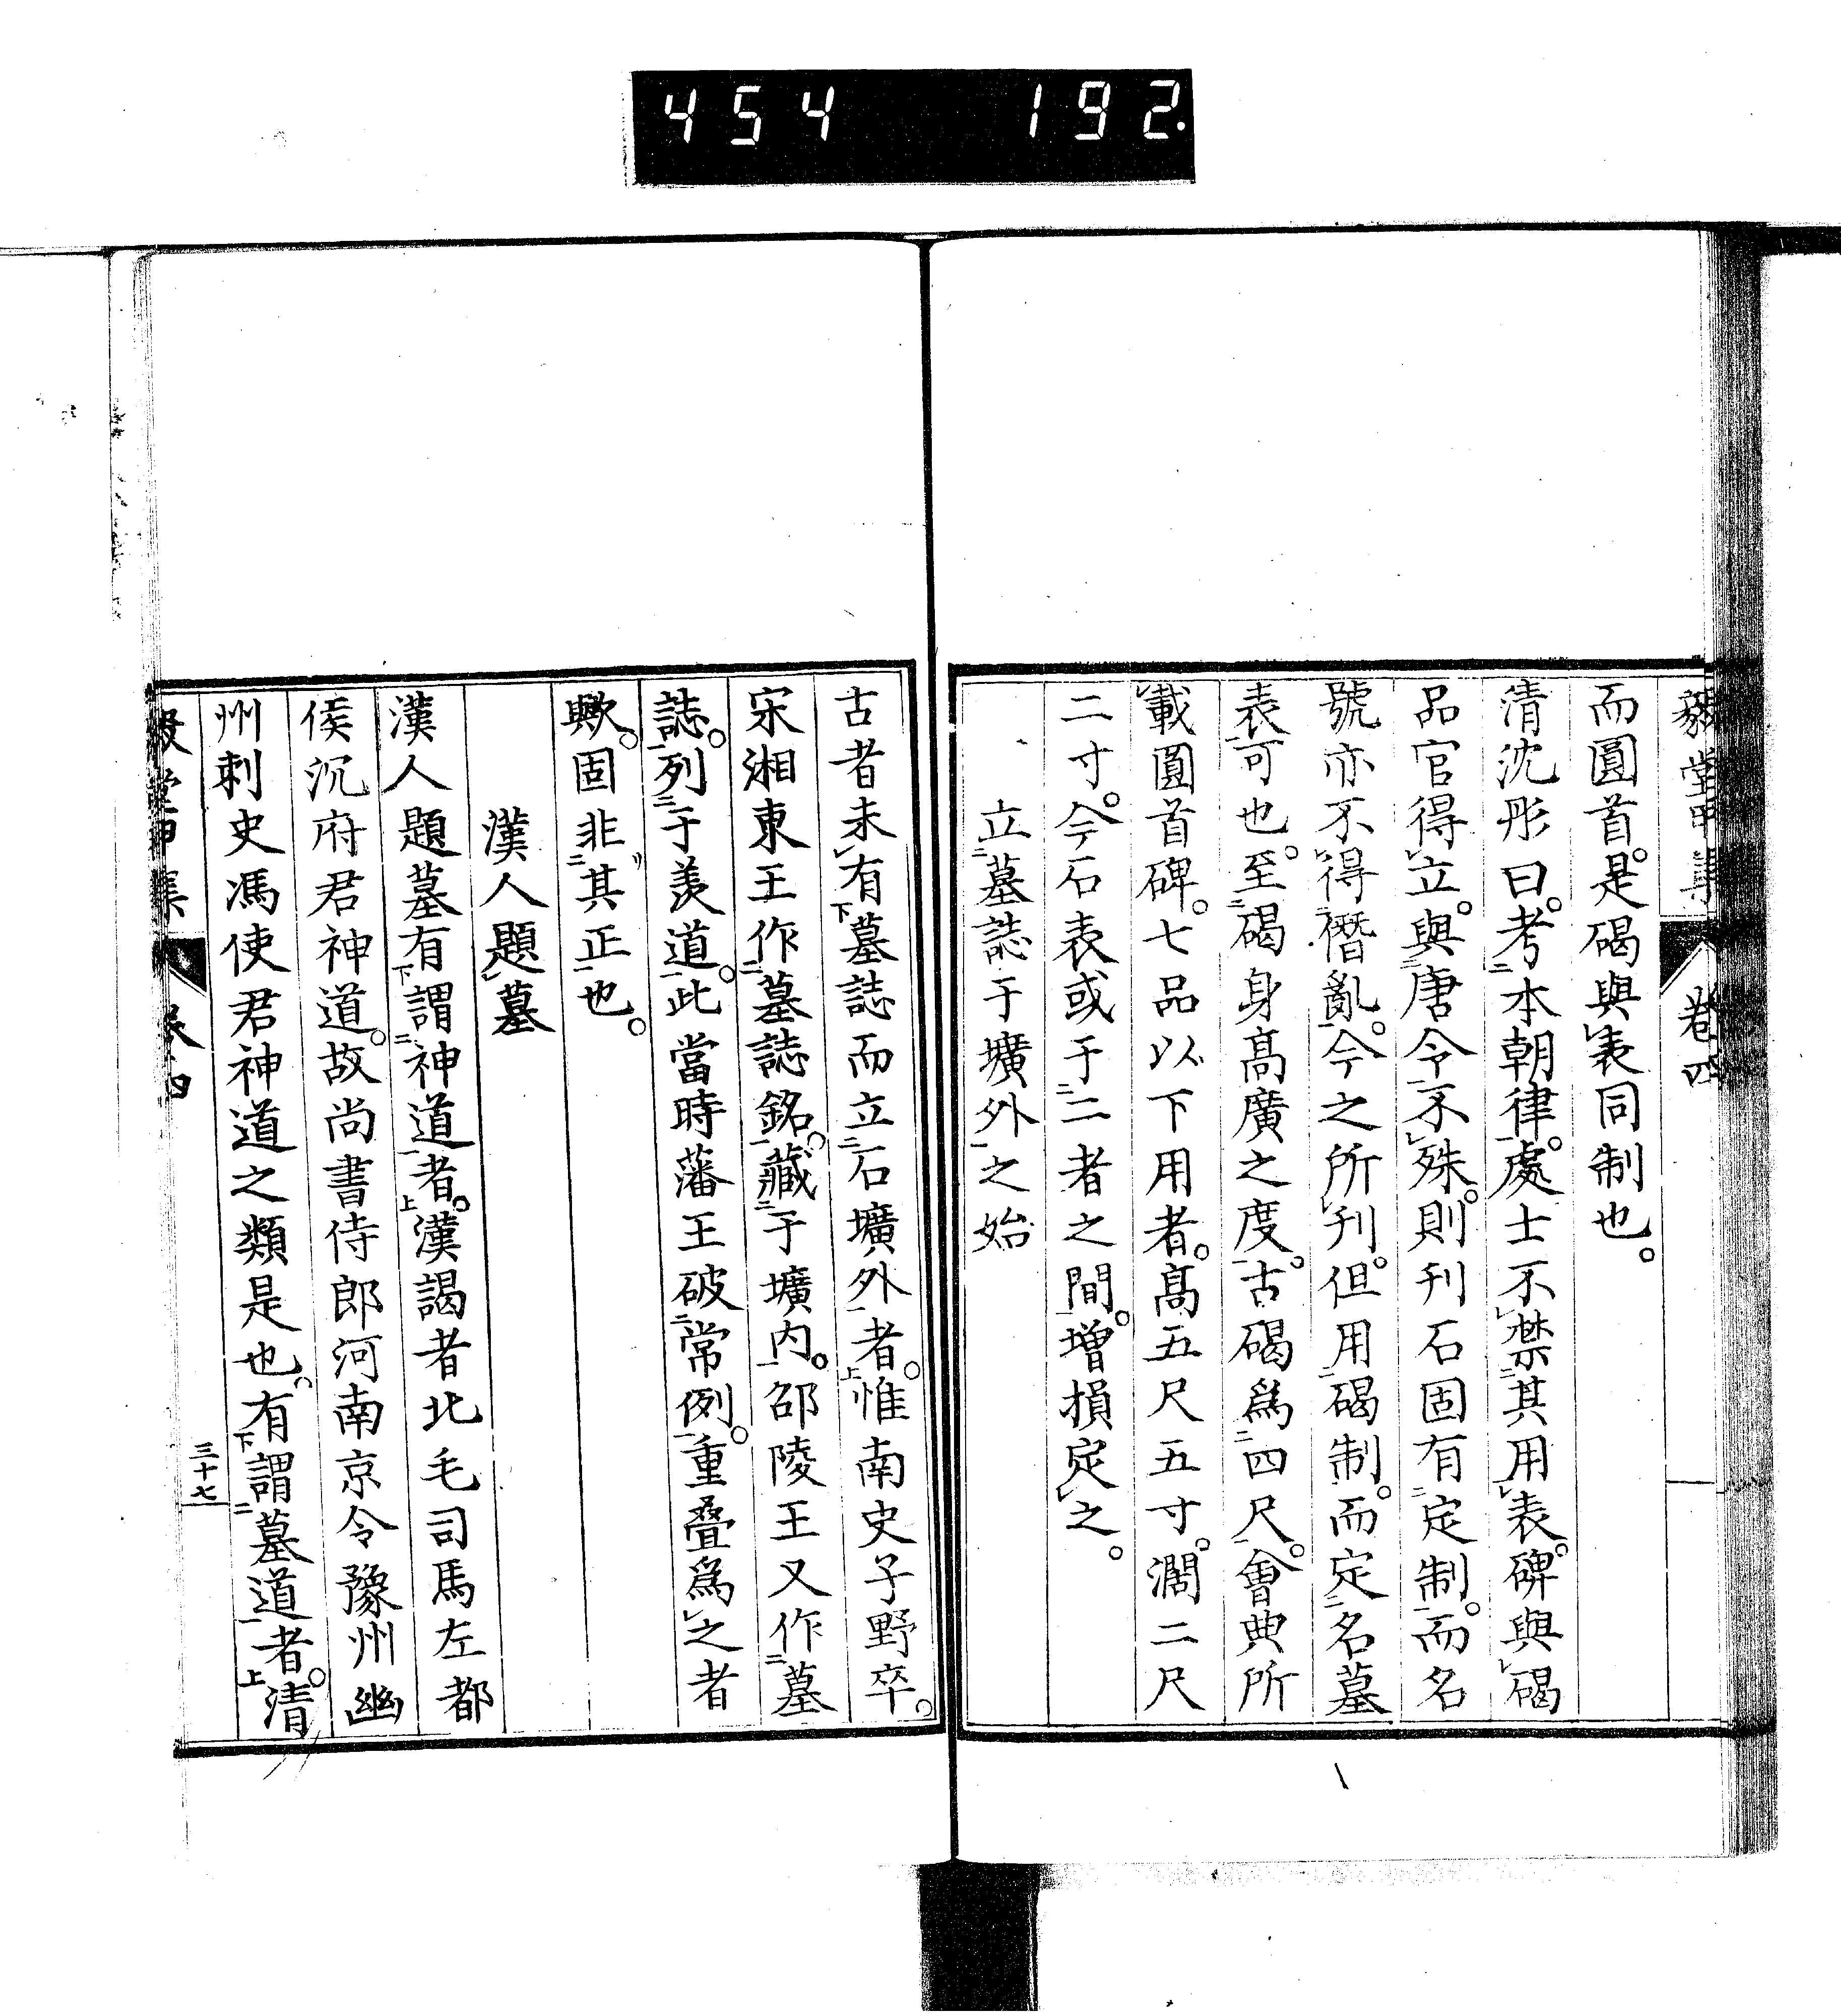 454 192.
毅堂甲集 卷四
而圓首。是碣與表同制也。
清沈彤曰。考本朝律。處士不禁其用表。碑與碣
品官得立。與唐令不殊。則刊石固有定制。而名
號亦不得僭亂。今之所刊。但用碣制。而定名墓
表可也。至碣身高廣之度。古碣爲四尺。會典所
載圓首碑。七品以下用者。高五尺五寸。濶二尺
二寸。今石表或于二者之間。增損定之。
立墓誌于壙外之始
古者未有墓誌而立石壙外者。惟南史子野卒。
宋湘東王作墓誌銘。藏于壙内。邵陵王又作墓
誌。列于羨道。此當時藩王破常例。重叠爲之者
歟。固非其正也。
漢人題墓
漢人題墓有謂神道者。漢謁者北屯司馬左都
侯沉府君神道。故尚書侍郎河南京令豫州幽
州刺史馮使君神道之類是也。有謂墓道者。清
毅堂甲集 卷四 三十七